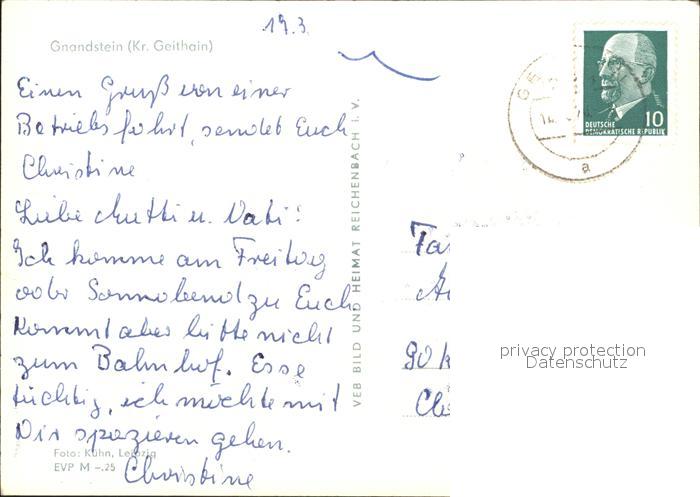 19.3.
Gnandstein (Kr. Geithain)
Einen Gruß von einer
Betriebsfahrt, sendet Euch
Christine
Liebe Mutti u. Vati!
Ich komme am Freitag
oder Sonnabend zu Euch
Kommt aber bitte nicht
zum Bahnhof. Esse
tüchtig, ich möchte mit
Dir spazieren gehen.
Christine
Foto: Kühn, Leipzig
EVP M –.25
VEB BILD UND HEIMAT REICHENBACH I. V.
10
DEUTSCHE
DEMOKRATISCHE REPUBLIK
a
Fa
90
privacy protection
Datenschutz